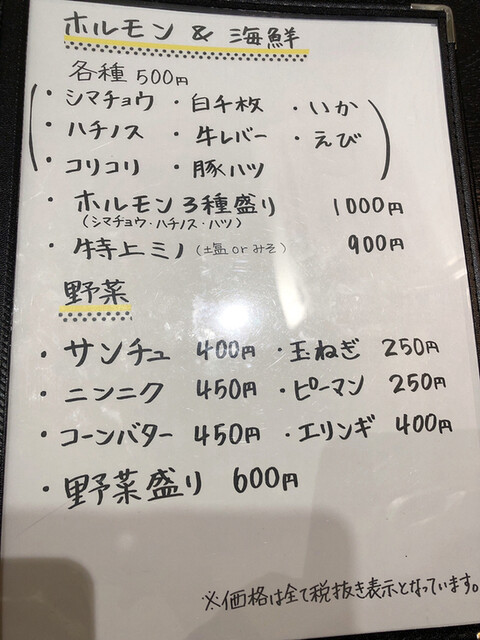 ホルモン & 海鮮
各種 500円
・シマチョウ ・白千枚 ・いか
・ハチノス ・牛レバー ・えび
・コリコリ ・豚ハツ
・ホルモン3種盛り 1000円
(シマチョウ・ハチノス・ハツ)
・特上ミノ (塩 or みそ) 900円
野菜
・サンチュ 400円 ・玉ねぎ 250円
・ニンニク 450円 ・ピーマン 250円
・コーンバター 450円 ・エリンギ 400円
・野菜盛り 600円
※価格は全て税抜き表示となっています。